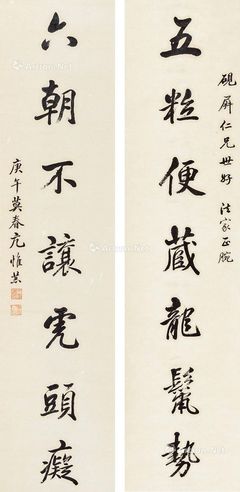 硯屏仁兄世好 法家正腕
五粒便藏龍鬣勢
六朝不讓虎頭癡
庚午莫春